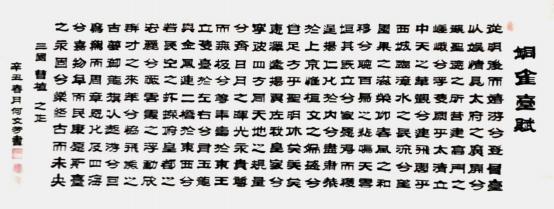 銅雀臺賦
從明後而嬉游兮登層臺
以娛情見太府之廣開兮
觀聖德之所營建高門之
嵯峨兮浮雙闕乎太清立
中天之華觀兮連飛閣乎
西城臨漳水之長流兮望
園果之滋榮仰春風之和
穆兮聽百鳥之悲鳴天雲
垣其既立兮家愿得而獲
逞揚仁化於宇內兮盡肅恭
於上京惟桓文之為盛兮
豈足方乎聖明休矣美矣
惠澤遠揚翼佐我皇家兮
寧彼四方同天地之規量
兮齊日月之暉光永貴尊
而無極兮等年壽於東王
立雙臺於左右兮有玉龍
與金鳳連二橋於東西兮
若長空之俯皇都之
宏麗兮瞰雲霞之浮動欣
群才之來萃兮協飛熊之
吉夢御龍旂以遨游兮回
鸞駕而周章恩化及四海
兮嘉物阜而民康願斯臺
之永固兮樂終古而未央
三國 曹植 之正
辛丑春月何文書